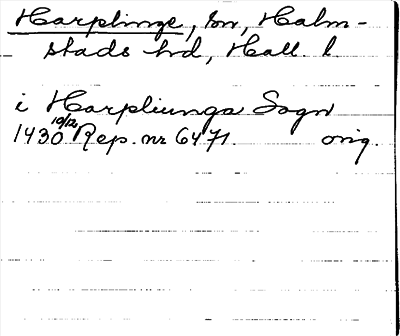 Harplinge, sn, Halm-
stads hd, Hall l.
i Harpliunga Sogn
1430 10/12 Rep. nr 6471. orig.